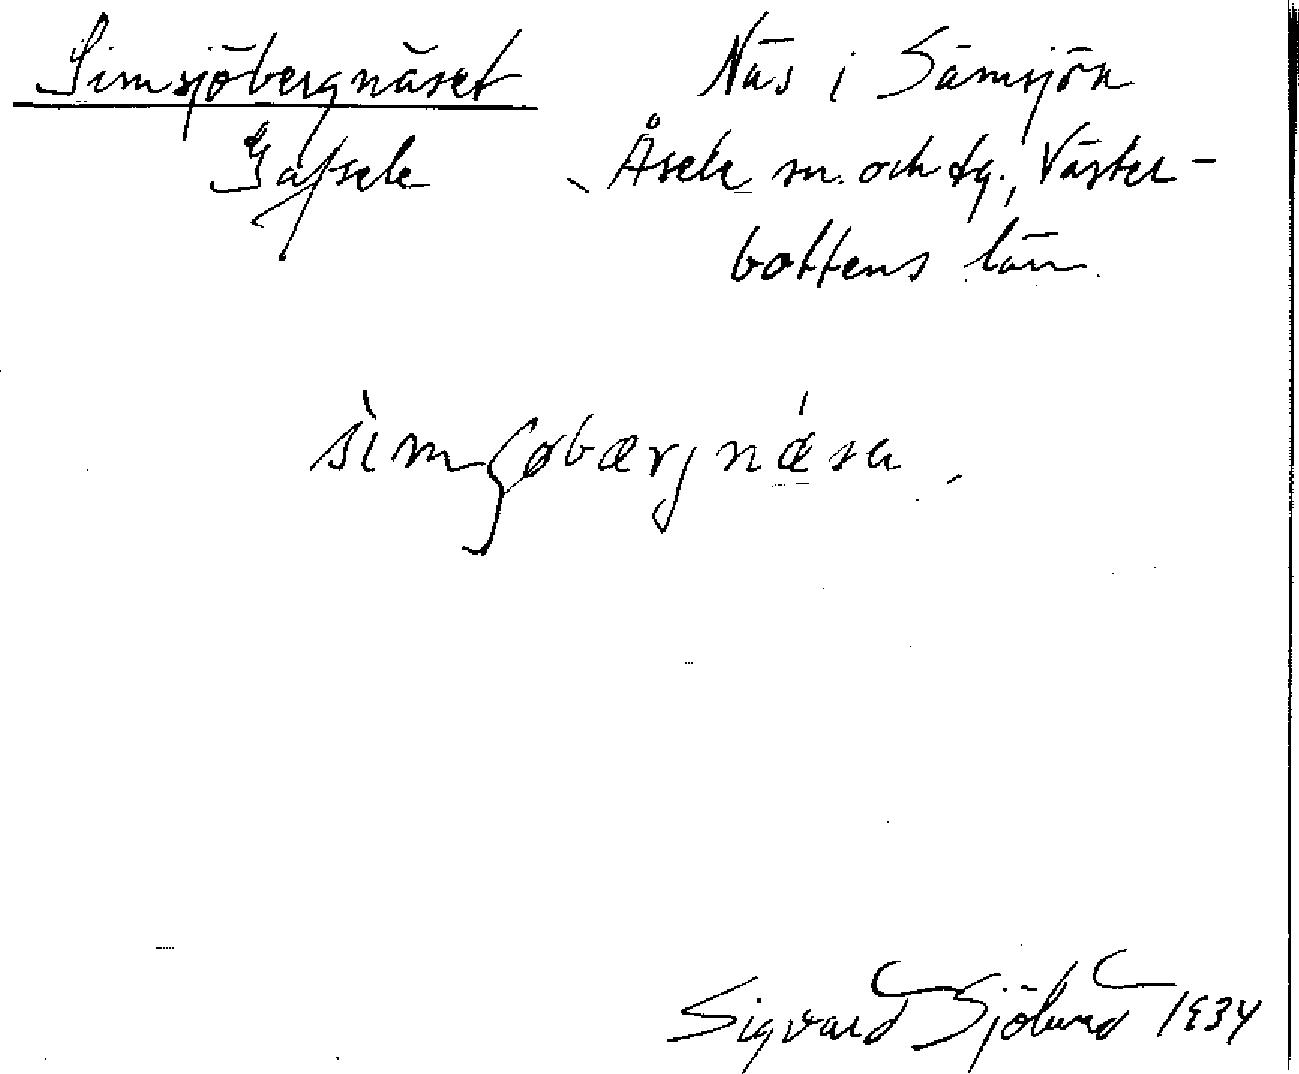 Simsjöbergnäset
Gafsele
Näs i Sämsjön
Åsele sn. och tg., Väster-
bottens län.
sìmʃøbærjnǽsa
Sigvard Sjölund 1934